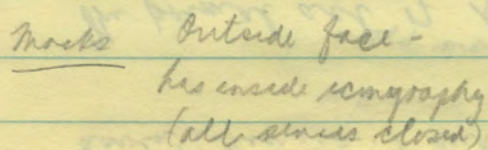 Masks Outside face -
has inside iconography
(all senses closed)